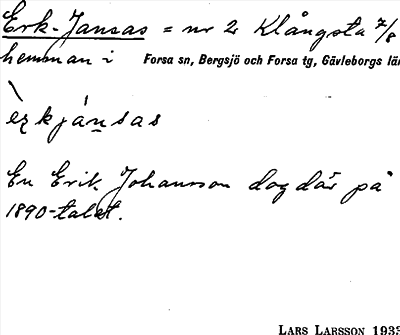 Erk-Jansas = nr 2 Klångsta 7/8
hemman i Forsa sn, Bergsjö och Forsa tg, Gävleborgs län
èrkjánsas
En Erik Johansson dog där på
1890-talet.
LARS LARSSON 1933